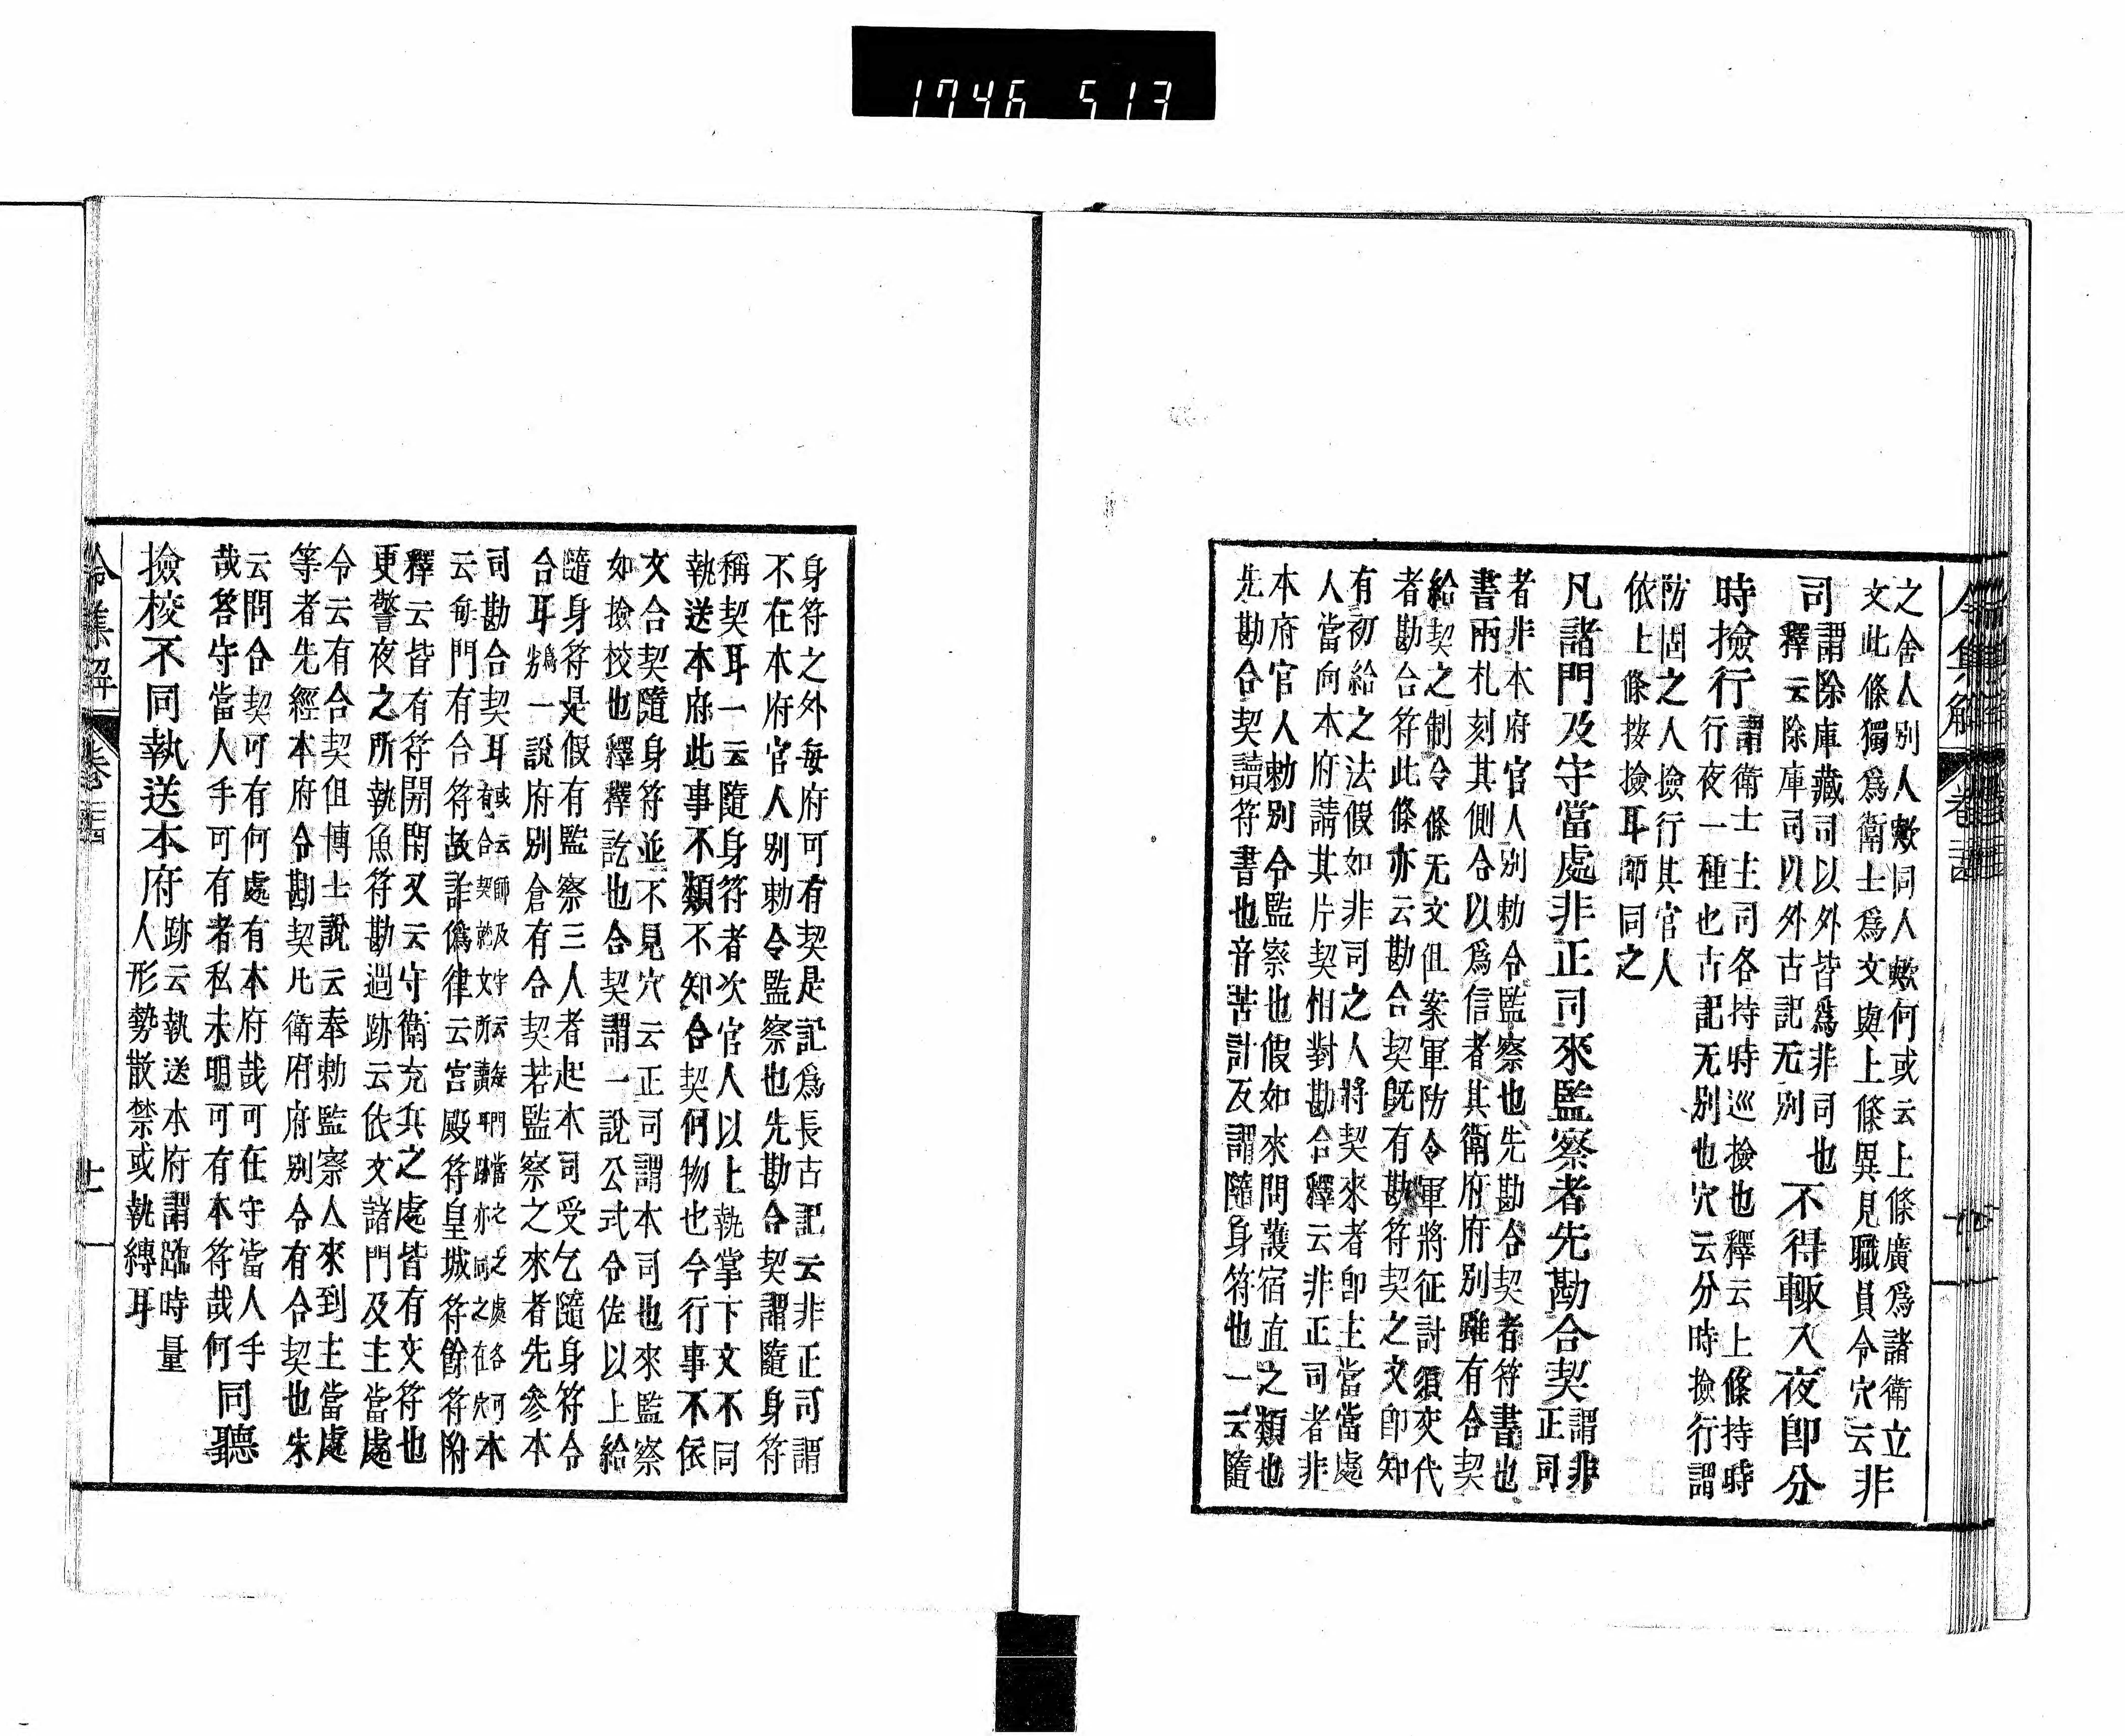 1746 513
令集解 卷二十四
之舍人別人歟同人歟何或云上條廣爲諸衛立
文此條獨爲衛士爲文與上條異見職員令穴云非
司謂除庫藏司以外皆爲非司也
釋云除庫司以外古記无別
不得輙入夜即分
時撿行謂衛士主司各持時巡撿也釋云上條持時
行夜一種也古記无別也穴云分時撿行謂
防固之人撿行其官人
依上條按撿耳師同之
凡諸門及守當處非正司來監察者先勘合契謂非
正司
者非本府官人別勅令監察也先勘合契者符書也
書兩札刻其側合以爲信者其衛府府別雖有合契
給契之制令條无文但案軍防令軍將征討須交代
者勘合符此條亦云勘合契既有勘符契之文即知
有初給之法假如非司之人將契來者即主當當處
人當向本府請其片契相對勘合釋云非正司者非
本府官人勅別令監察也假如來問護宿直之類也
先勘合契讀符書也音苦計反謂隨身符也一云隨
身符之外每府可有契是記爲長古記云非正司謂
不在本府官人別勅令監察也先勘合契謂隨身符
稱契耳一云隨身符者次官人以上執掌下文不同
執送本府此事不類不知合契何物也今行事不依
文合契隨身符並不見穴云正司謂本司也來監察
如撿校也釋釋訖也合契謂一說公式令佐以上給
隨身符是假有監察三人者起本司受乞隨身符令
合耳爲一說府別倉有合契若監察之來者先參本
司勘合契耳或云師及守云每門當之處各可
有合契
本
云每門有合符故詐僞律云宮殿符皇城符餘符附
釋云皆有符開閇又云守衛充兵之處皆有交符也
更警夜之所執魚符勘過跡云依文諸門及主當處
令云有合契但博士說云奉勅監察人來到主當處
等者先經本府令勘契凡衛府府別令有合契也朱
云問合契可有何處有本府哉可在守當人手
哉答守當人手可有者私未明可有本符哉何
同聽
撿校不同執送本府跡云執送本府謂臨時量
人形勢散禁或執縛耳
令集解 卷二十四 十一